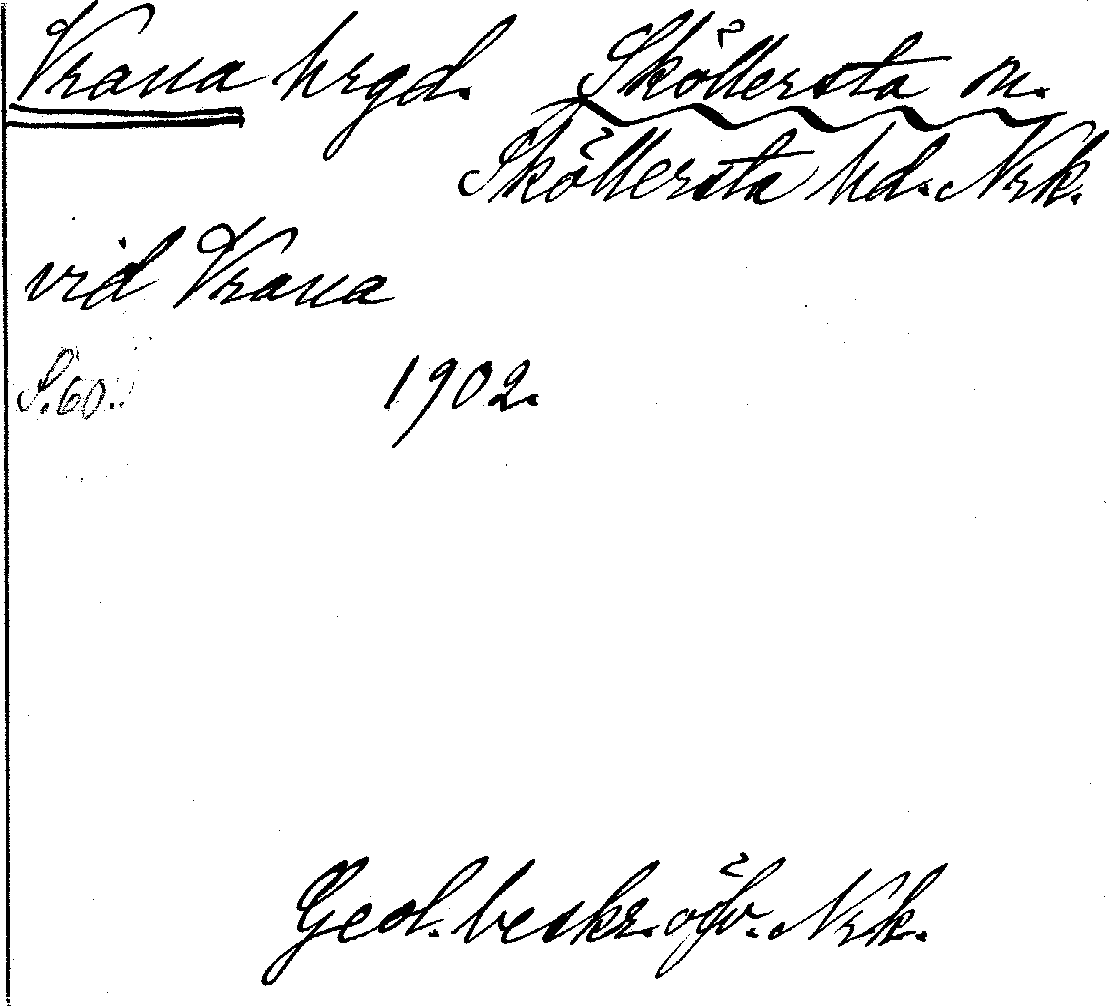 Vrana hrgd. Sköllersta sn.
Sköllersta hd. Nrk.
vid Vrana
S. 60. 1902.
Geol. beskr. öfv. Nrk.